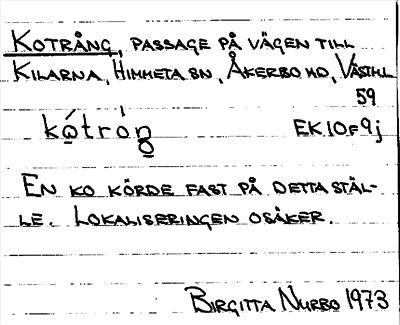 KOTRÅNG, PASSAGE PÅ VÄGEN TILL
KILARNA, HIMMETA SN, ÅKERBO HD, VÄSTML
59
kọ́trón̲g̲ EK10F9j
EN KO KÖRDE FAST PÅ DETTA STÄL-
LE. LOKALISERINGEN OSÄKER.
BIRGITTA NURBO 1973